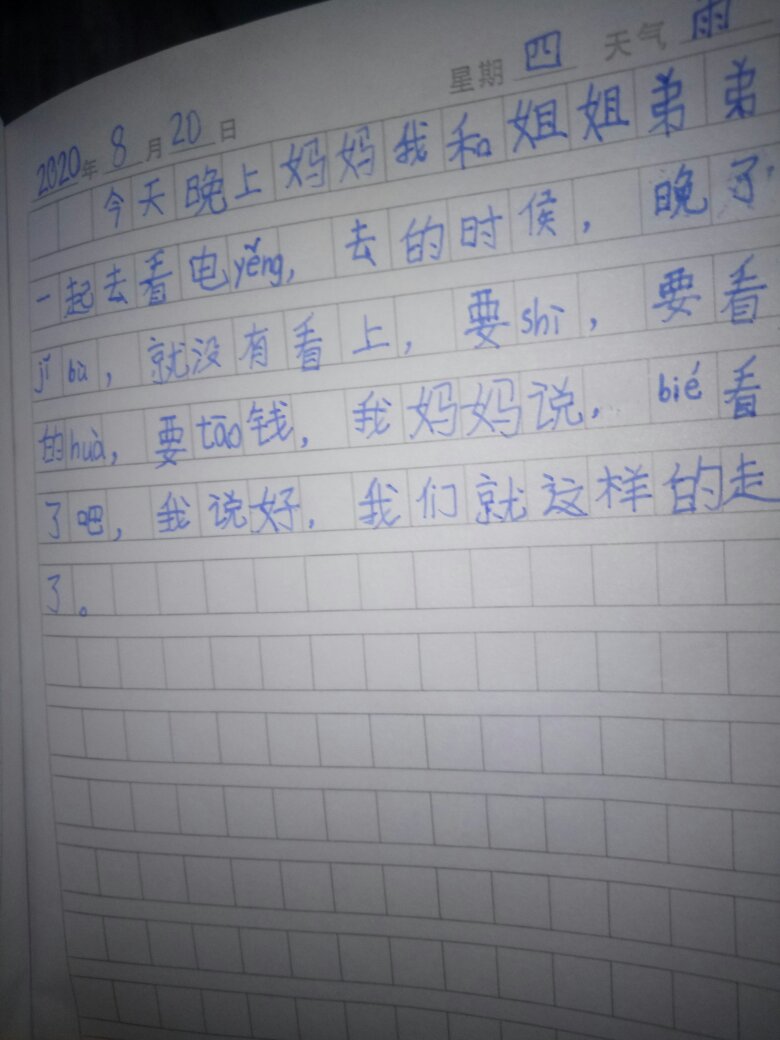 星期 四 天气 雨
2020年 8 月 20 日
今天晚上妈妈我和姐姐弟弟
一起去看电yěng, 去的时侯, 晚了
jǐ bù, 就没有看上, 要shì, 要看
的huà, 要tāo钱, 我妈妈说, bié看
了吧, 我说好, 我们就这样的走
了。